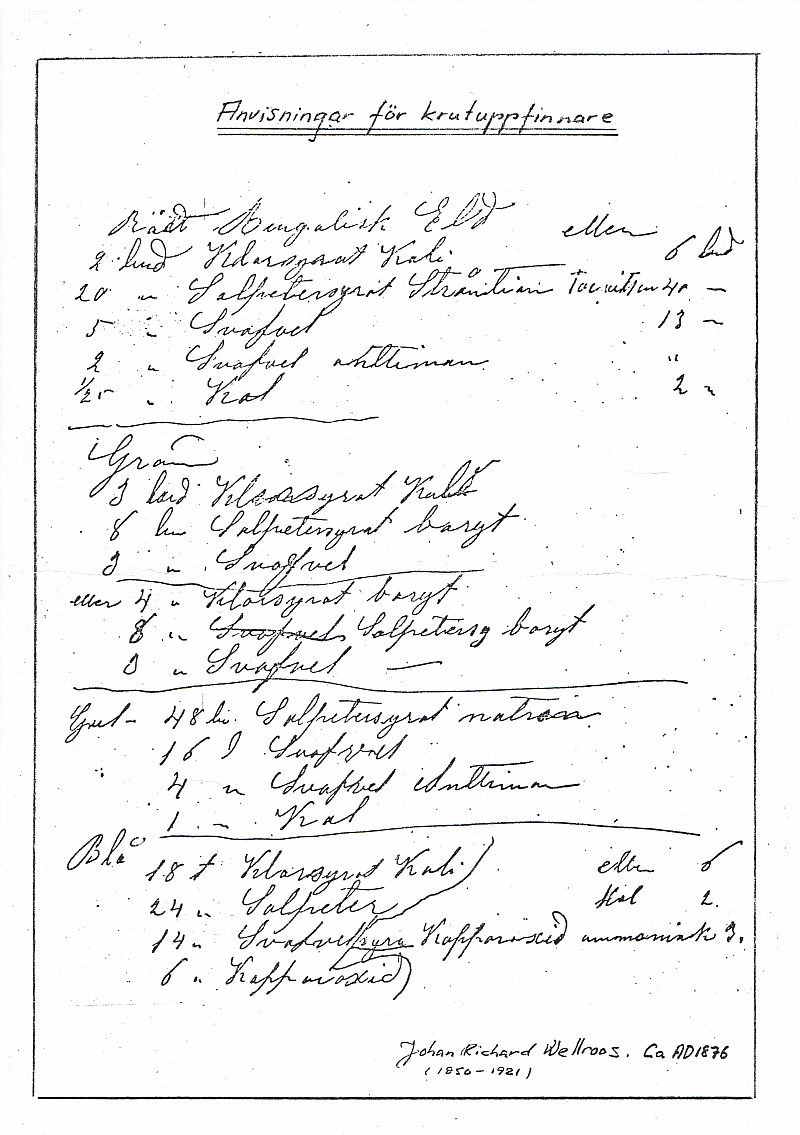 Anvisningar för krutuppfinnare
Rödt Bengalisk Eld eller 6 lod
2 lod Klorsyrat Kali
20 " Salpetersyrat Stråntian 40 —
5 " Svafvel 13 —
2 " Svafvel anttiman "
1/25 " Kol 2 "
Grön
3 lod Klorsyrat Kali
8 Salpetersyrat baryt
3 " Svafvel
eller 4 " Klorsyrat baryt
8 " Svafvel Salpetersy baryt
3 " Svafvel —
Gul - 48 Salpetersyrat natron
16 Svafvel
4 " Svafvel Anttiman
1 " Kol
Blå 18 Klorsyrat Kali eller 6
24 " Salpeter Kol 2.
14 " Svafvelsyra Kopparoxid ammoniak 3.
6 " Kopparoxid
Johan Richard Wellroos. Ca AD 1876
(1850-1921)